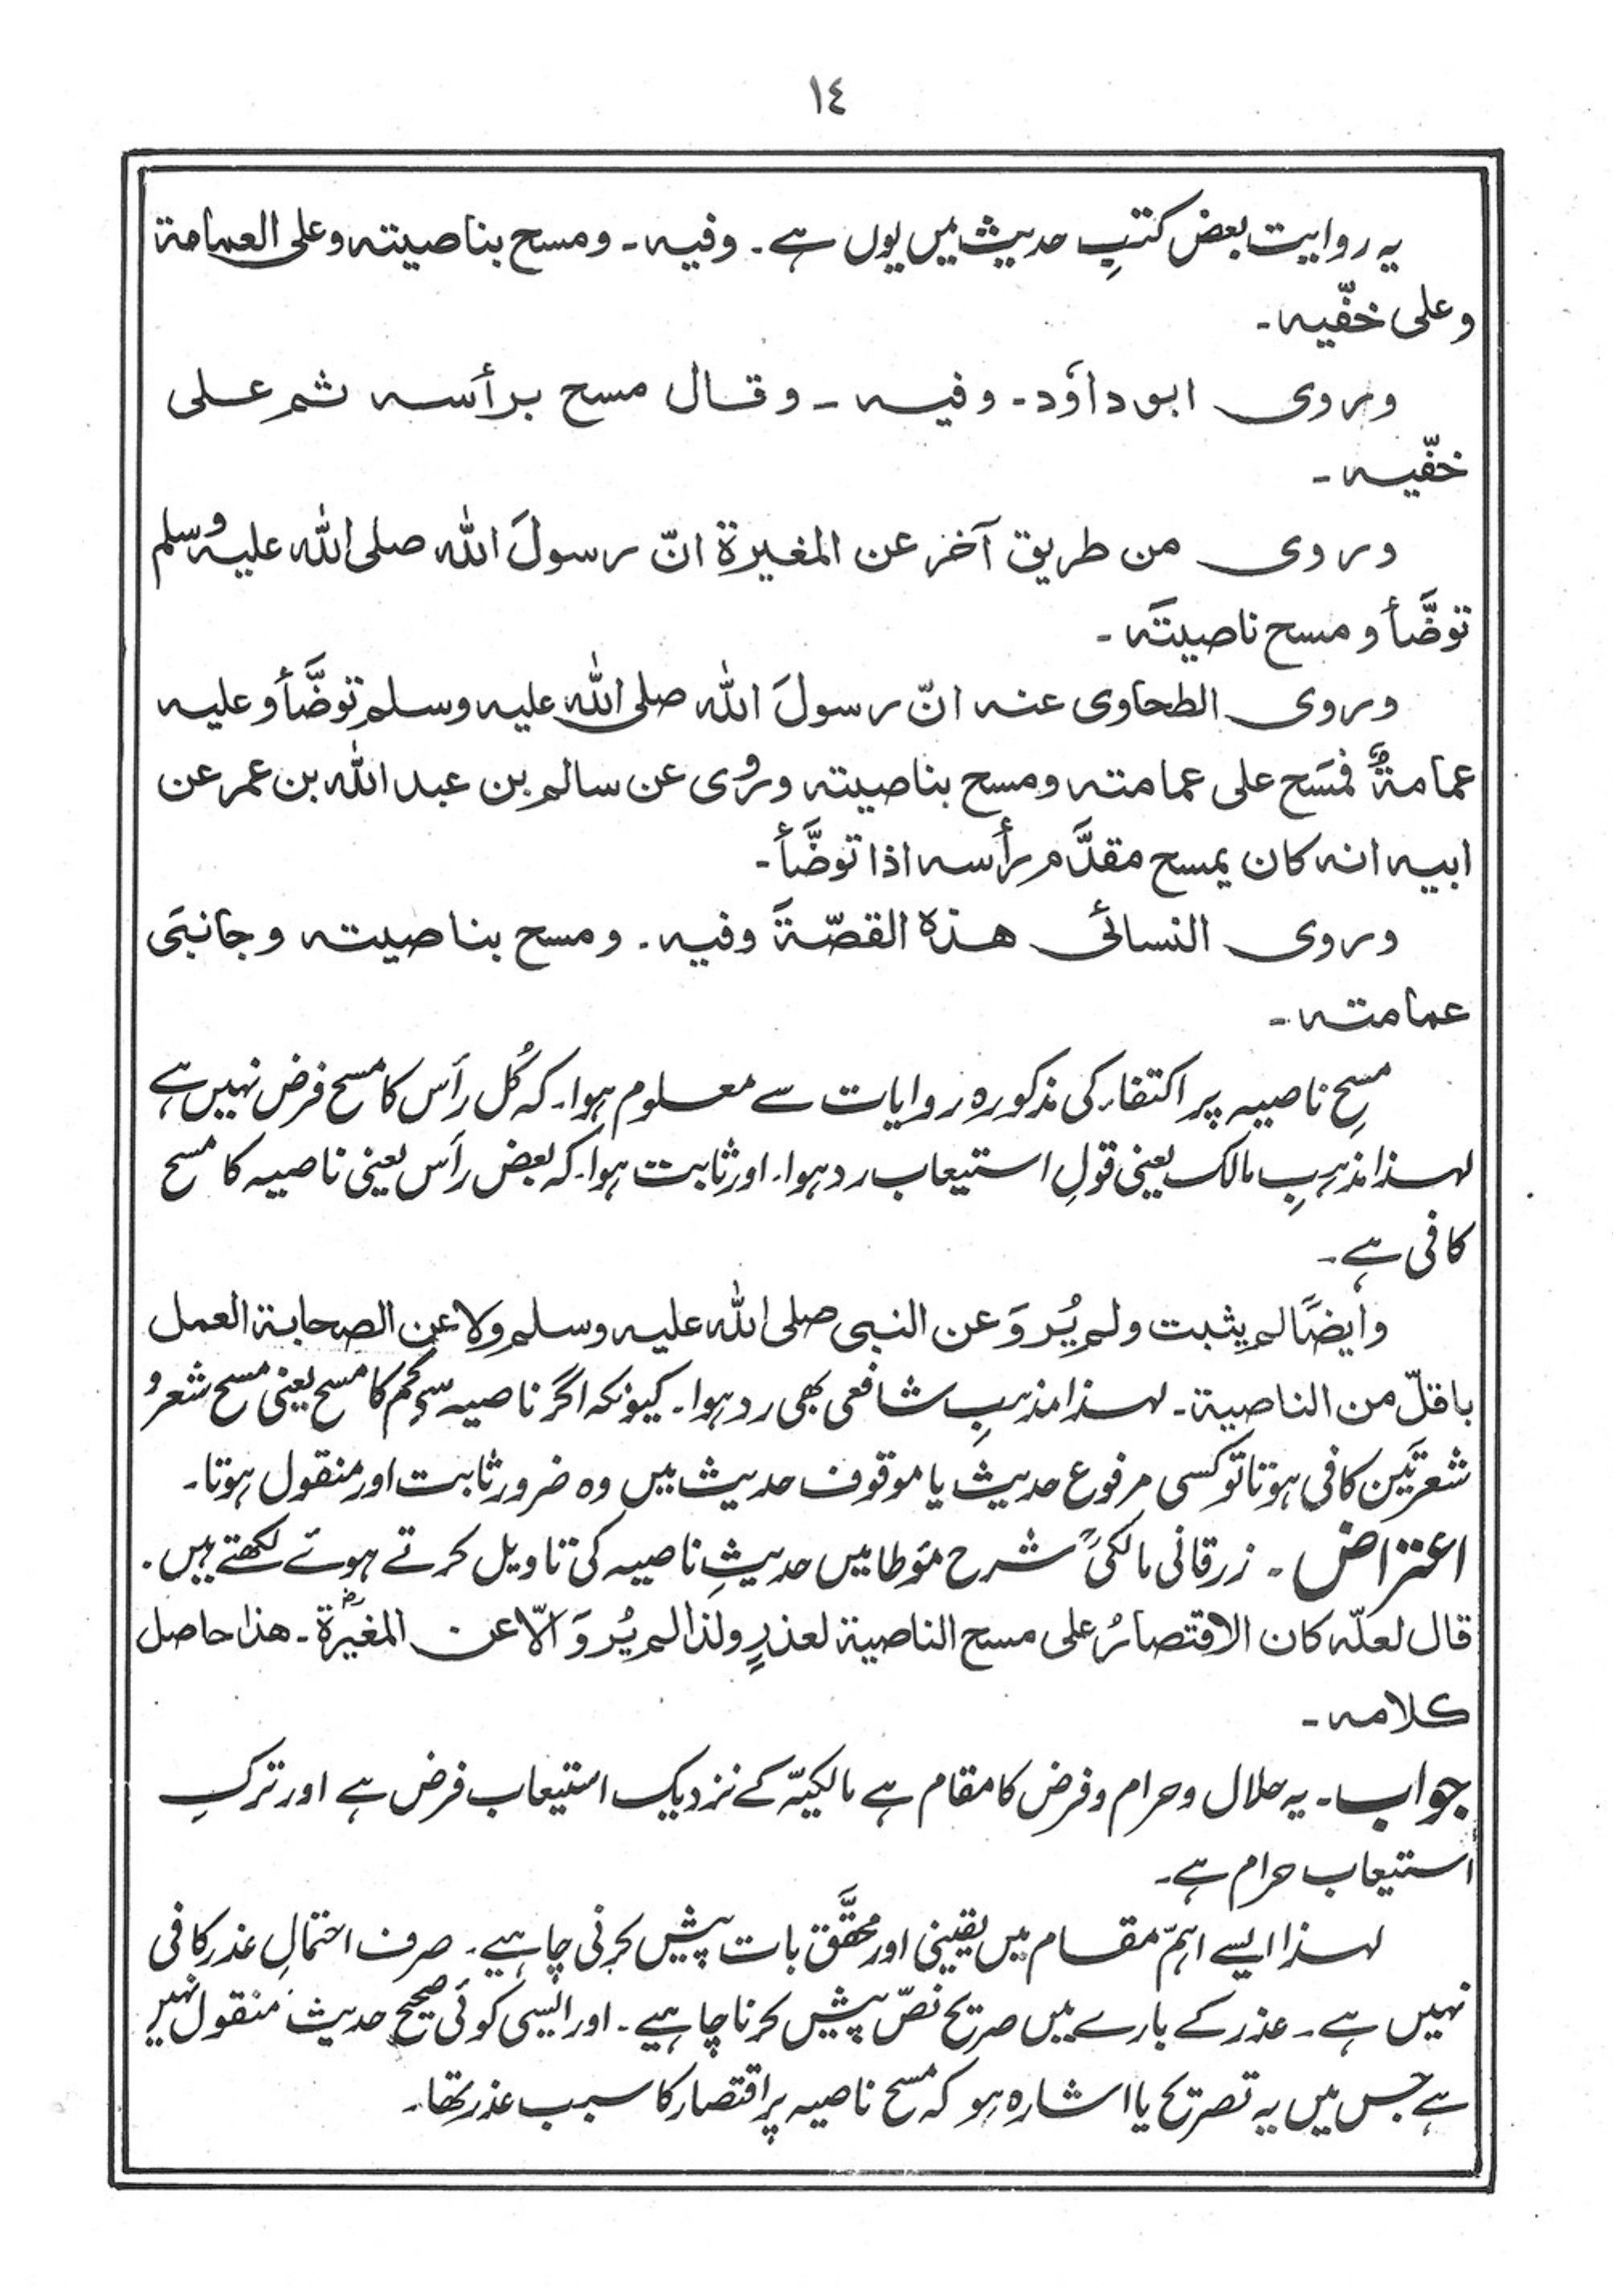 ١٤
یہ روایت بعض کتبِ حدیث میں یوں ہے۔ وفیہ۔ ومسح بناصیتہ وعلی العمامۃ
وعلی خفّیہ۔
وروی ابوداؤد۔ وفیہ ۔ وقال مسح برأسہ ثم علی
خفّیہ ۔
وروی من طریق آخر عن المغیرۃ انّ رسولَ اللّٰہ صلی اللّٰہ علیہ وسلم
توضَّأ و مسح ناصیتَہ ۔
وروی الطحاوی عنہ انّ رسولَ اللّٰہ صلی اللّٰہ علیہ وسلم توضَّأ وعلیہ
عمامۃٌ فمسَح علی عمامتہ ومسح بناصیتہ ورُوی عن سالم بن عبد اللّٰہ بن عمر عن
ابیہ انہ کان یمسح مقدَّم رأسہ اذا توضَّأ۔
وروی النسائی ھذہ القصّۃَ وفیہ۔ ومسح بناصیتہ وجانبَی
عمامتہ ۔
مسحِ ناصیہ پر اکتفاء کی مذکورہ روایات سے معلوم ہوا۔ کہ کُل رأس کا مسح فرض نہیں ہے
لہٰذا مذہبِ مالک یعنی قولِ استیعاب رد ہوا۔ اور ثابت ہوا۔ کہ بعض رأس یعنی ناصیہ کا مسح
کافی ہے۔
وایضًا لم یثبت ولم یُروَ عن النبی صلی اللّٰہ علیہ وسلم ولا عن الصحابۃ العمل
باقلّ من الناصیۃ۔ لہٰذا مذہبِ شافعی بھی رد ہوا۔ کیونکہ اگر ناصیہ سے کم کا مسح یعنی مسح شعر و
شعرتَین کافی ہوتا تو کسی مرفوع حدیث یا موقوف حدیث میں وہ ضرور ثابت اور منقول ہوتا۔
اعتراض ۔ زرقانی مالکیؒ شرح مؤطا میں حدیثِ ناصیہ کی تاویل کرتے ہوئے لکھتے ہیں۔
قال لعلّہ کان الاقتصارُ علی مسح الناصیۃ لعذرٍ ولذا لم یُروَ الّا عن المغیرۃؓ۔ ھذا حاصل
کلامہ ۔
جواب۔ یہ حلال وحرام وفرض کا مقام ہے مالکیّہ کے نزدیک استیعاب فرض ہے اور ترکِ
استیعاب حرام ہے۔
لہٰذا ایسے اہمّ مقام میں یقینی اور محقَّق بات پیش کرنی چاہیے۔ صرف احتمالِ عذر کافی
نہیں ہے۔ عذر کے بارے میں صریح نصّ پیش کرنا چاہیے۔ اور ایسی کوئی صحیح حدیث منقول نہیں
ہے جس میں یہ تصریح یا اشارہ ہو کہ مسح ناصیہ پر اقتصار کا سبب عذر تھا۔